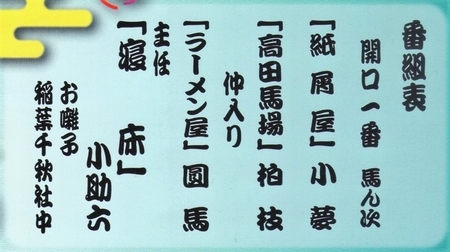 番組表
開口一番 馬ん次
「紙屑屋」小夢
「高田馬場」柏枝
仲入り
「ラーメン屋」圓馬
主任
「寝床」小助六
お囃子
稲葉千秋社中